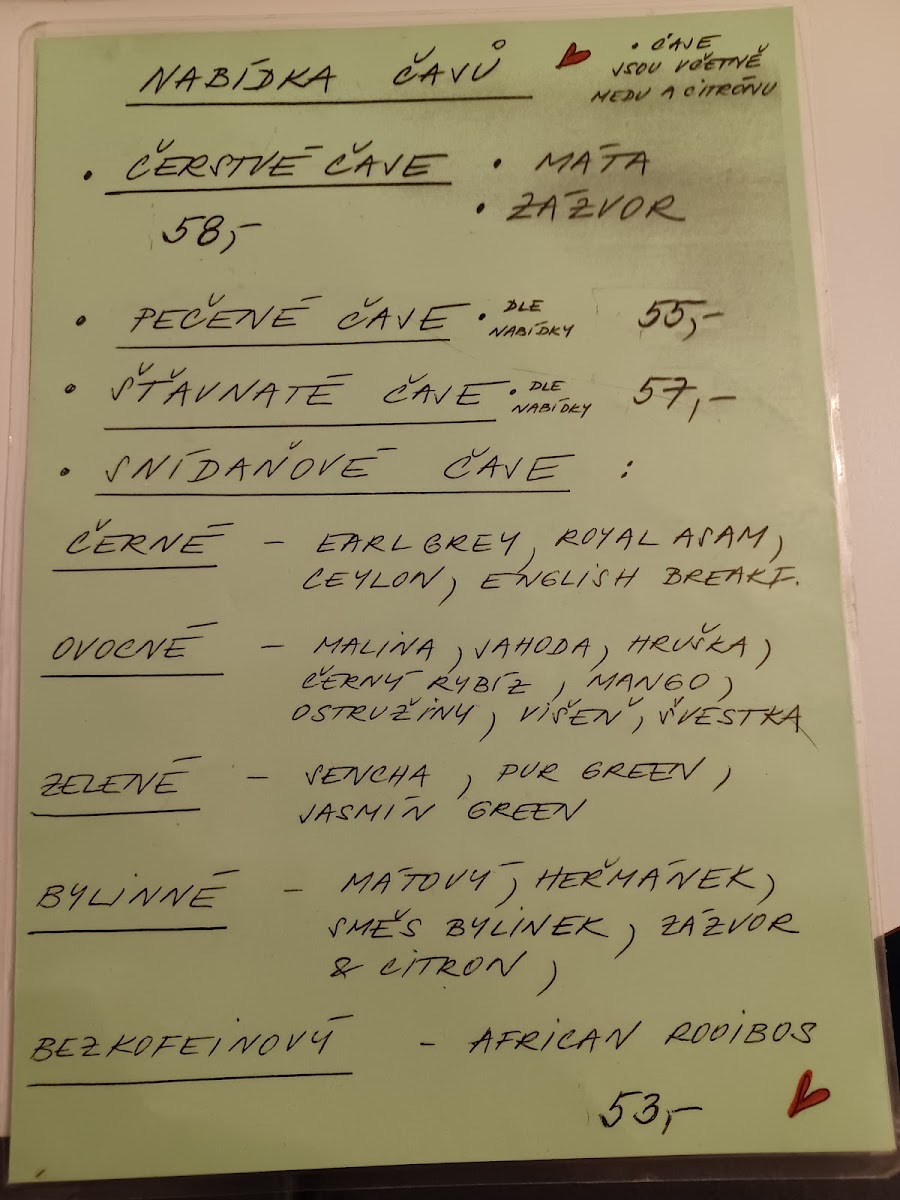 NABÍDKA ČAJŮ
• ČAJE
JSOU VČETNĚ
MEDU A CITRÓNU
• ČERSTVÉ ČAJE
58,-
• MÁTA
• ZÁZVOR
• PEČENÉ ČAJE • DLE NABÍDKY 55,-
• ŠŤAVNATÉ ČAJE • DLE NABÍDKY 57,-
• SNÍDAŇOVÉ ČAJE :
ČERNÉ - EARL GREY, ROYAL ASAM,
CEYLON, ENGLISH BREAKF.
OVOCNÉ - MALINA, JAHODA, HRUŠKA,
ČERNÝ RYBÍZ, MANGO,
OSTRUŽINY, VIŠEŇ, ŠVESTKA
ZELENÉ - SENCHA, PUR GREEN,
JASMÍN GREEN
BYLINNÉ - MÁTOVÝ, HEŘMÁNEK,
SMĚS BYLINEK, ZÁZVOR
& CITRON,
BEZKOFEINOVÝ - AFRICAN ROOIBOS
53,-